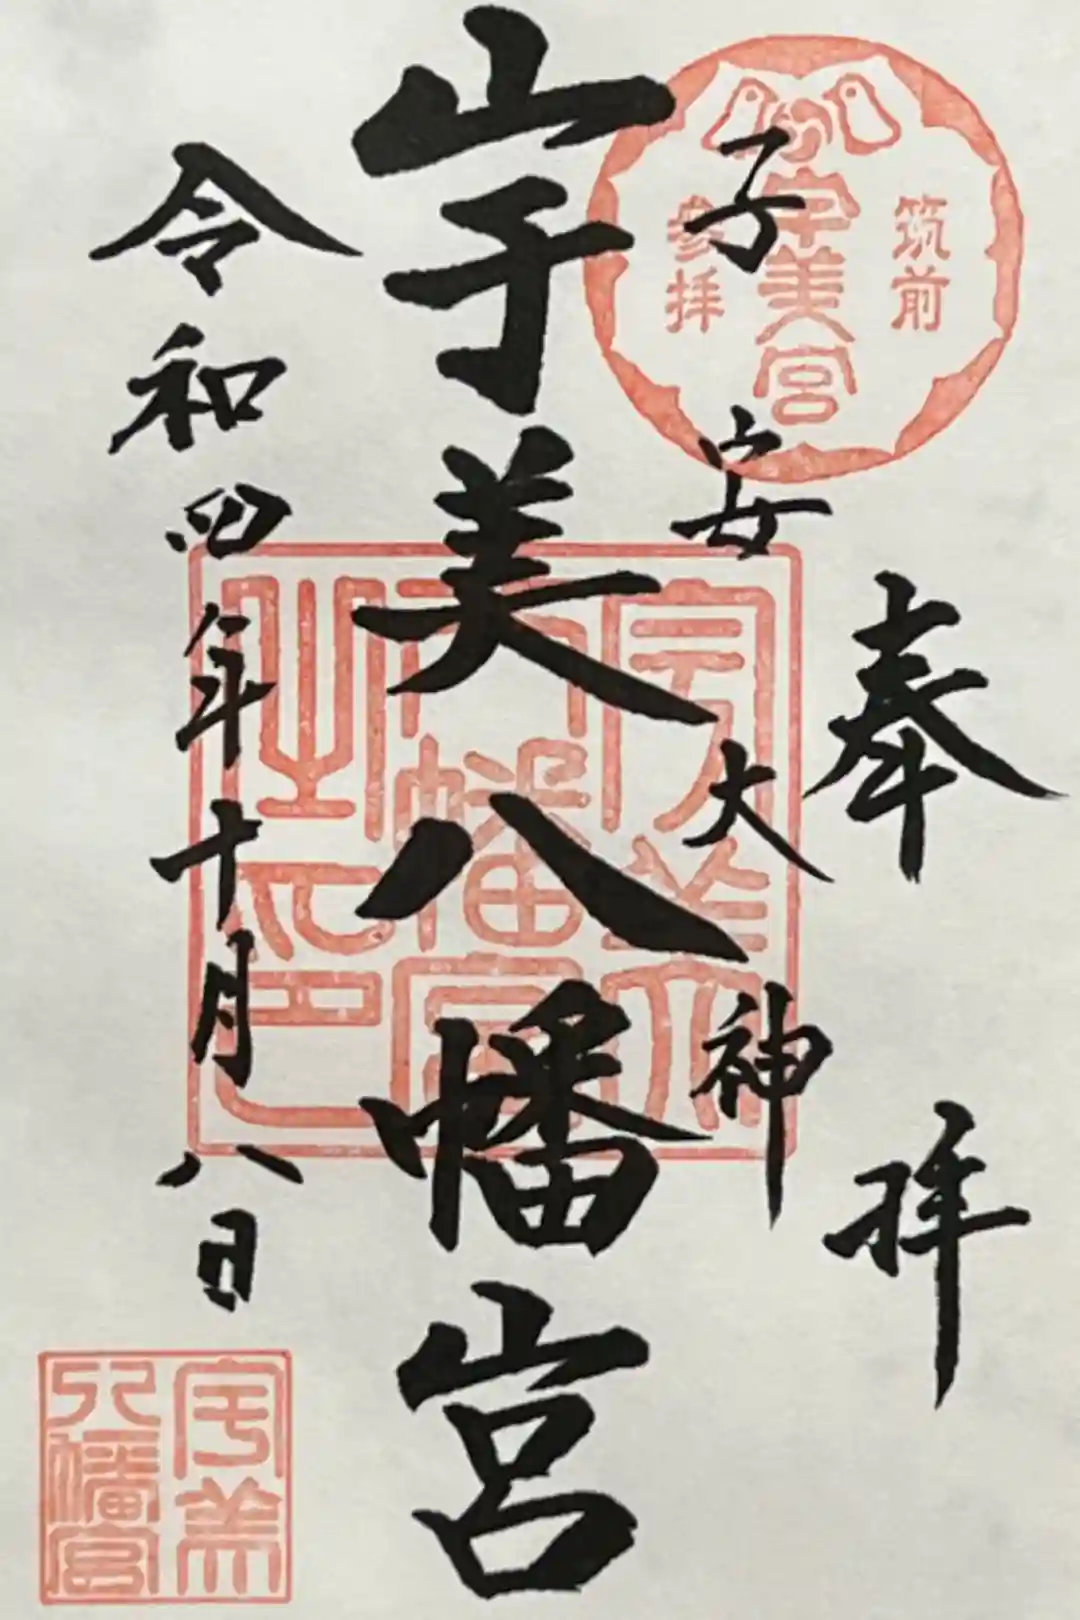 奉拝
子安大神
宇美八幡宮
令和四年十月八日
筑前
宇美宮
参拝
宇美
八幡宮
之印
宇美
八幡宮